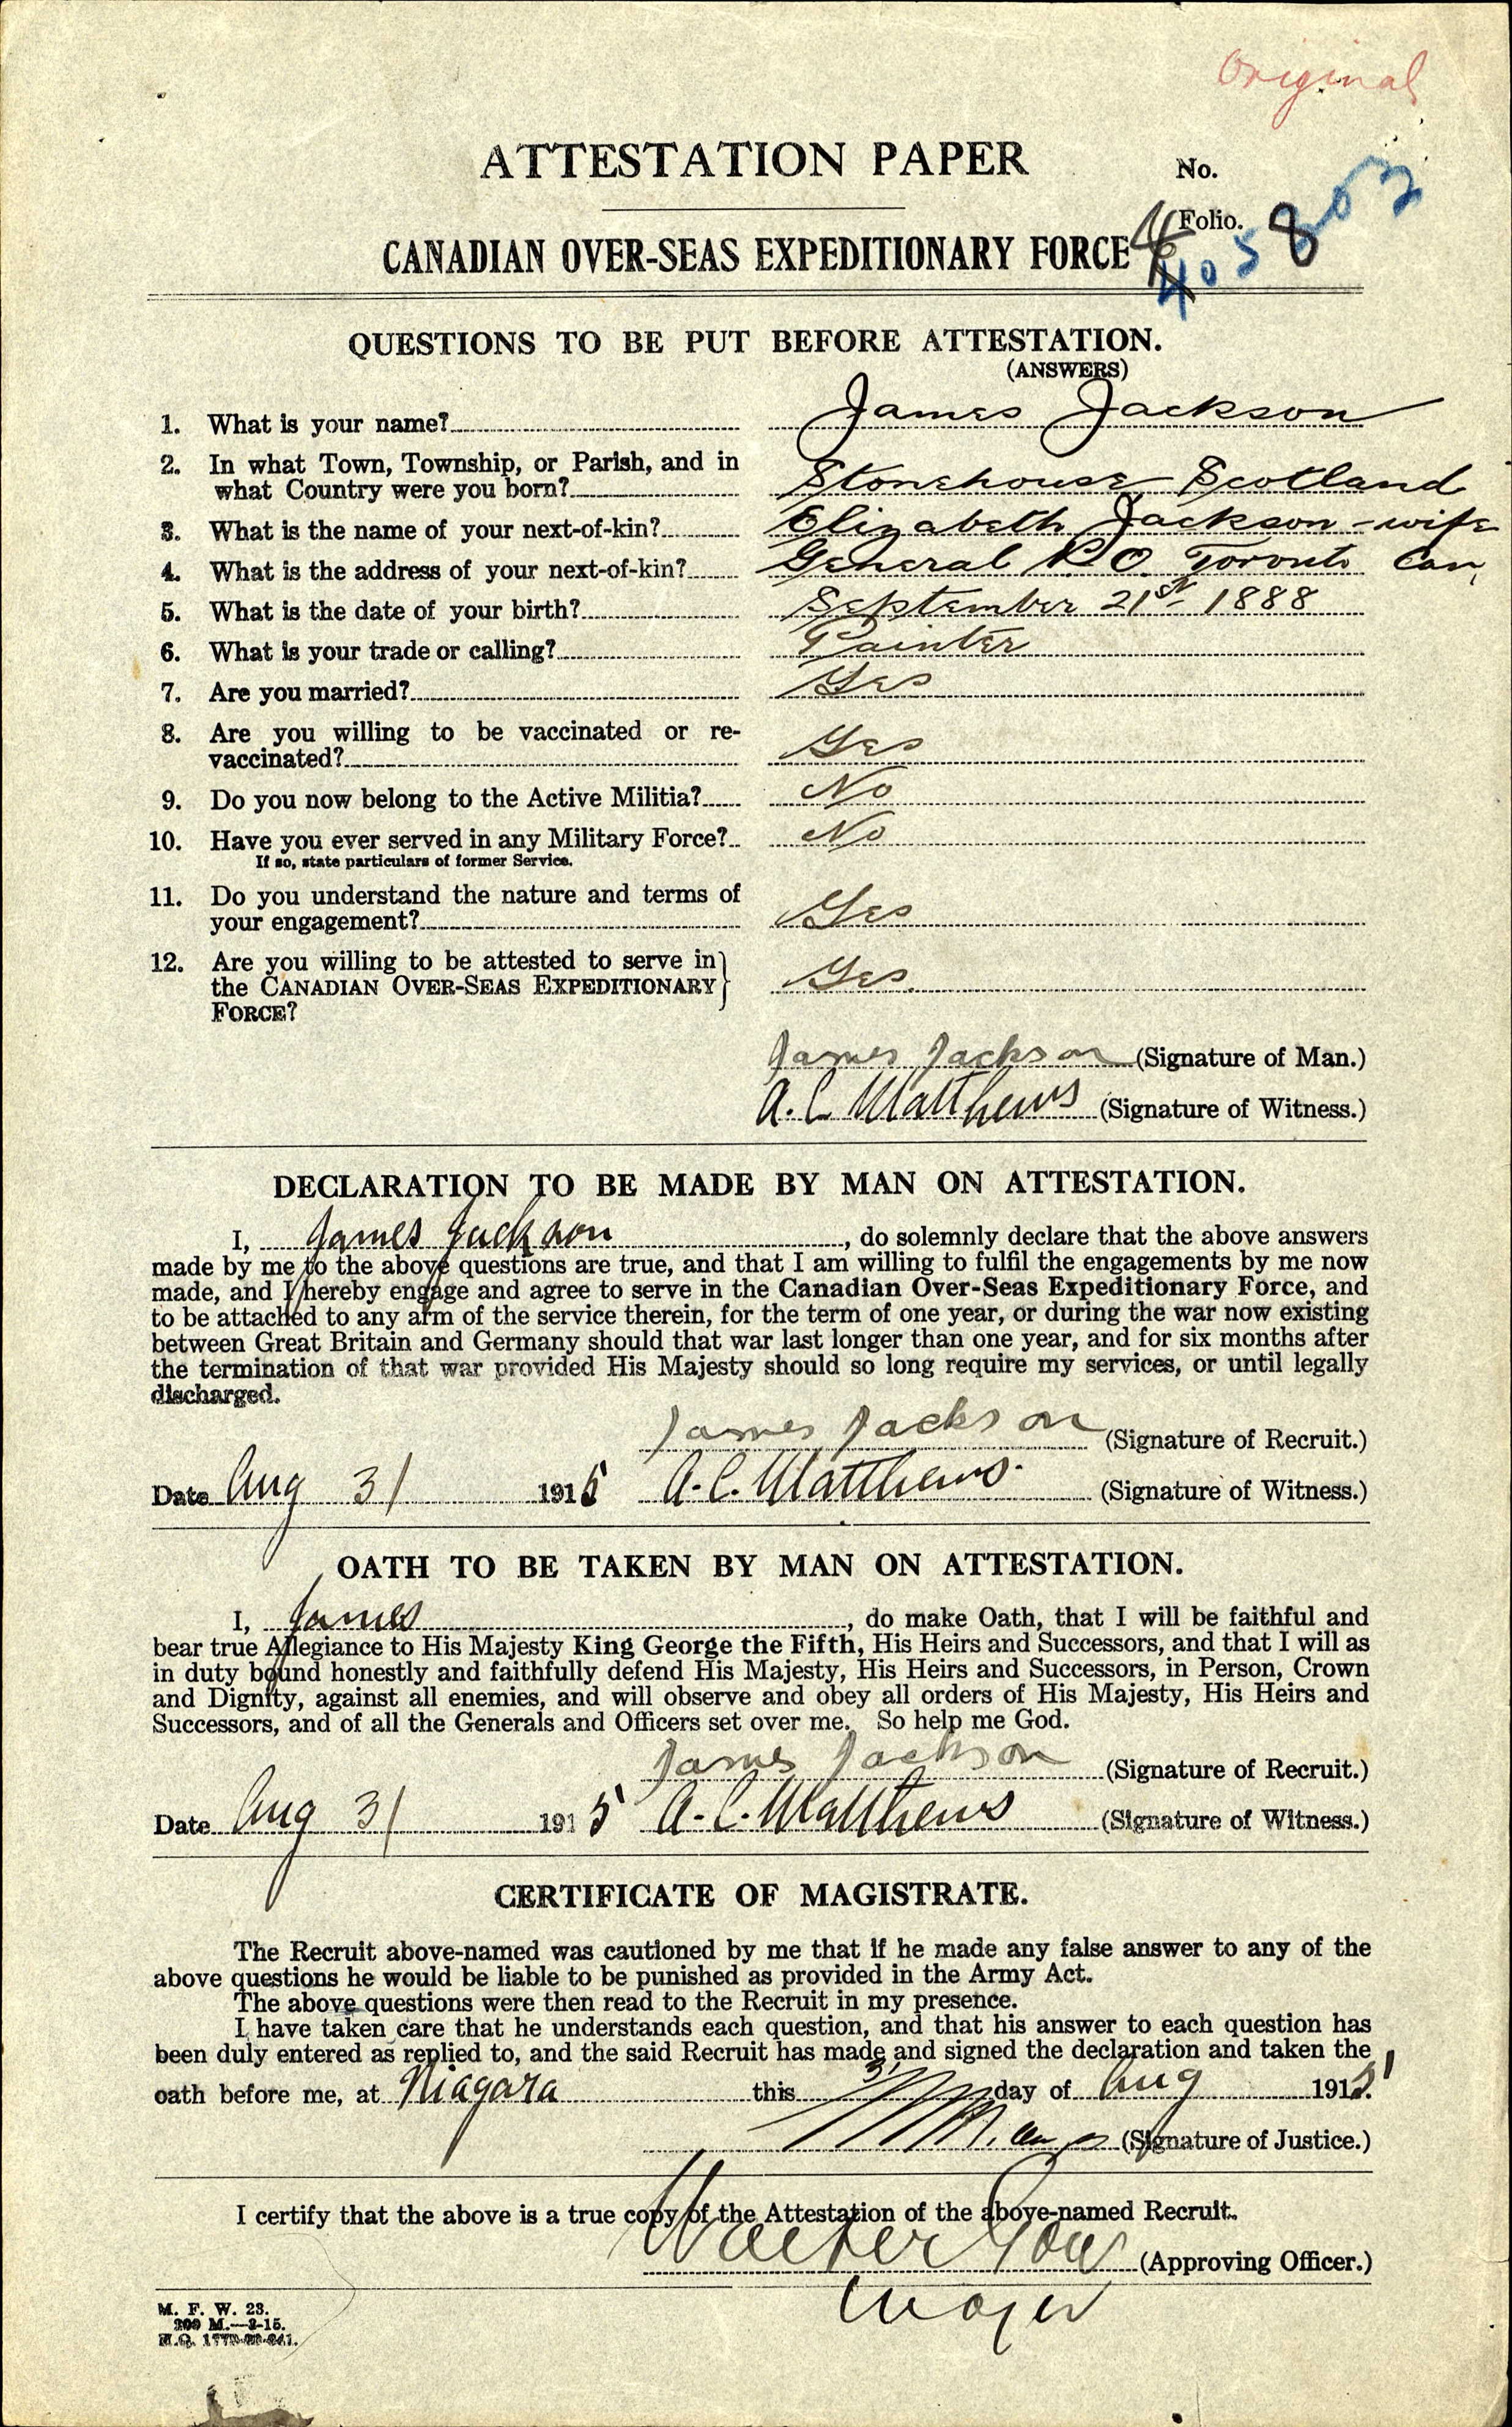 Original
ATTESTATION PAPER
No.
Folio.
405803
CANADIAN OVER-SEAS EXPEDITIONARY FORCE
QUESTIONS TO BE PUT BEFORE ATTESTATION.
(ANSWERS)
1. What is your name? James Jackson
2. In what Town, Township, or Parish, and in
what Country were you born? Stonehouse Scotland
3. What is the name of your next-of-kin? Elizabeth Jackson - wife
4. What is the address of your next-of-kin? General P.O. Toronto Can,
5. What is the date of your birth? September 21st 1888
6. What is your trade or calling? Painter
7. Are you married? Yes
8. Are you willing to be vaccinated or re-
vaccinated? Yes
9. Do you now belong to the Active Militia? No
10. Have you ever served in any Military Force? No
If so, state particulars of former Service.
11. Do you understand the nature and terms of
your engagement? Yes
12. Are you willing to be attested to serve in
the CANADIAN OVER-SEAS EXPEDITIONARY Yes.
FORCE?
James Jackson (Signature of Man.)
A. C. Matthews (Signature of Witness.)
DECLARATION TO BE MADE BY MAN ON ATTESTATION.
I, James Jackson, do solemnly declare that the above answers
made by me to the above questions are true, and that I am willing to fulfil the engagements by me now
made, and I hereby engage and agree to serve in the Canadian Over-Seas Expeditionary Force, and
to be attached to any arm of the service therein, for the term of one year, or during the war now existing
between Great Britain and Germany should that war last longer than one year, and for six months after
the termination of that war provided His Majesty should so long require my services, or until legally
discharged.
James Jackson (Signature of Recruit.)
Date Aug 31 1915 A. C. Matthews. (Signature of Witness.)
OATH TO BE TAKEN BY MAN ON ATTESTATION.
I, James, do make Oath, that I will be faithful and
bear true Allegiance to His Majesty King George the Fifth, His Heirs and Successors, and that I will as
in duty bound honestly and faithfully defend His Majesty, His Heirs and Successors, in Person, Crown
and Dignity, against all enemies, and will observe and obey all orders of His Majesty, His Heirs and
Successors, and of all the Generals and Officers set over me. So help me God.
James Jackson (Signature of Recruit.)
Date Aug 31 1915 A. C. Matthews (Signature of Witness.)
CERTIFICATE OF MAGISTRATE.
The Recruit above-named was cautioned by me that if he made any false answer to any of the
above questions he would be liable to be punished as provided in the Army Act.
The above questions were then read to the Recruit in my presence.
I have taken care that he understands each question, and that his answer to each question has
been duly entered as replied to, and the said Recruit has made and signed the declaration and taken the
oath before me, at Niagara this 31 day of Aug 1915.
(Signature of Justice.)
I certify that the above is a true copy of the Attestation of the above-named Recruit.
Walter Gow (Approving Officer.)
Major
M. F. W. 23.
200 M.—3-15.
H.Q. 1772-39-841.